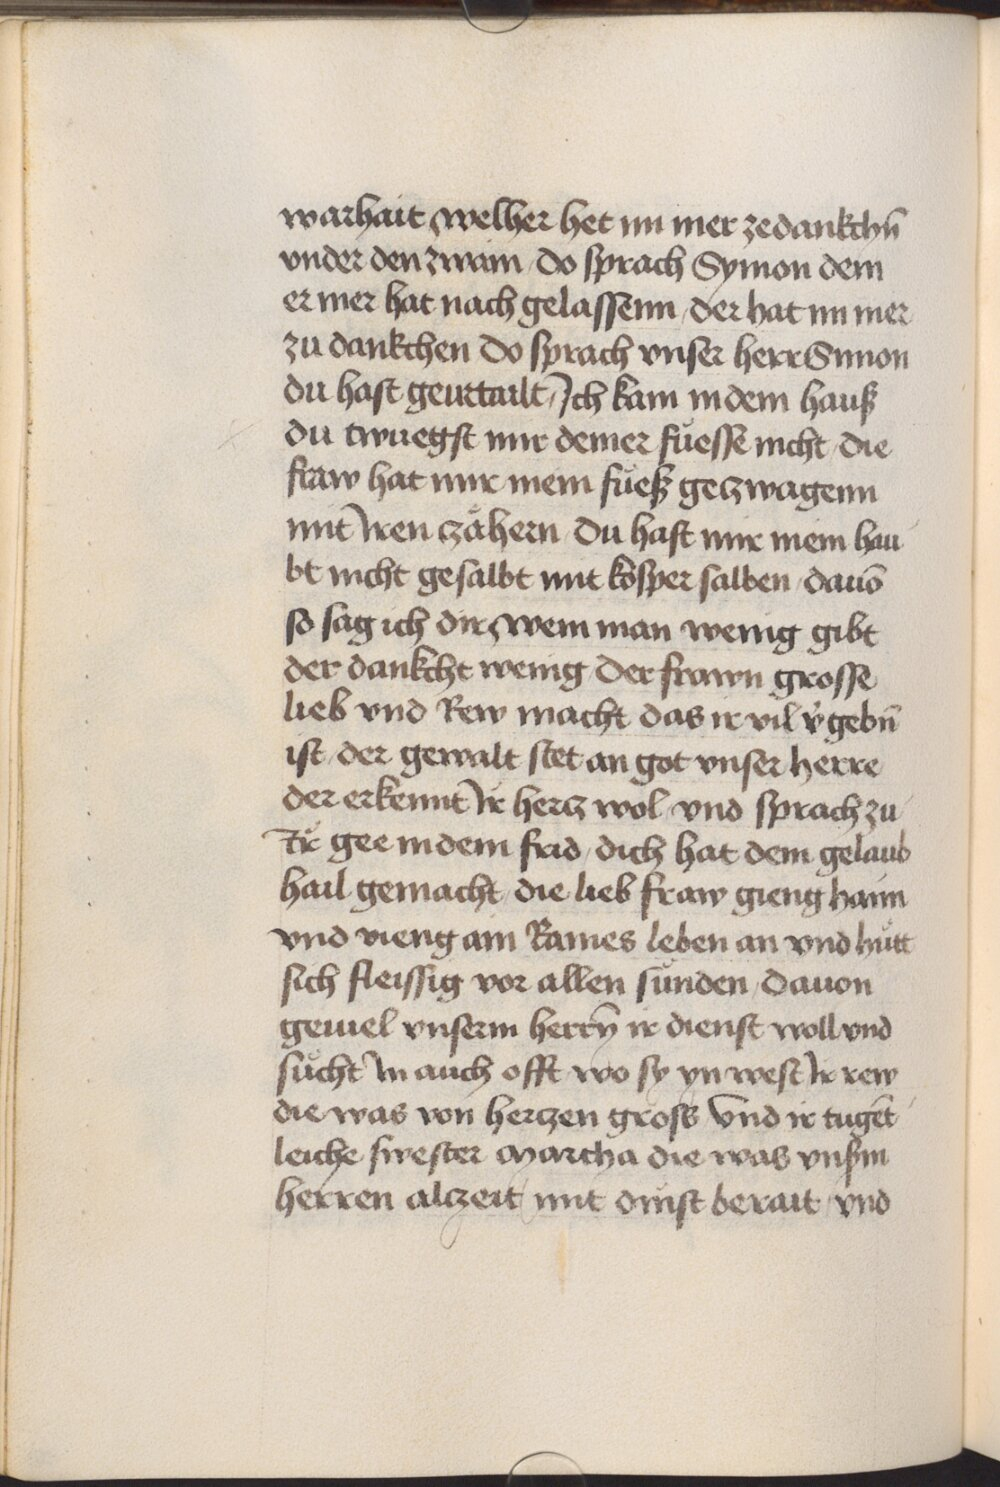 warhait welher het im mer zedankchn̄
vnder den zwain / do sprach Symon dem
er mer hat nach gelassenn / der hat im mer
zu dankchen Do sprach vnser herr Simon
du hast geurtailt / Ich kam in dein hauß
du twuegst mir deiner fuͤesse nicht / die
fraw hat mir mein fuͤeß geczwagenn
mit Iren czaͤhern / Du hast mir mein hau
bt nicht gesalbt mit kosper salben / dauō
so sag ich dir / wem man wenig gibt
der dankcht wenig Der frawn grosse
lieb vnd Rew macht das ir vil v̓gebn̄
ist / der gewalt stet an got vnser herre
der erkennt Ir hercz wol / vnd sprach zu
Ir gee in dem frid / dich hat dein gelaub
hail gemacht / die lieb fraw gieng haim
vnd vieng ain Raines leben an vnd huͤtt
sich fleissig vor allen suͤnden / Dauon
geuiel vnserm herrn̄ ir dienst woll vnd
suͤcht In auch offt wo sy yn west Ir rew
die was von herczen gross Vnd ir tugēt
leiche swester Martha die was vnßm
herren alczeit / mit dinst berait / vnd